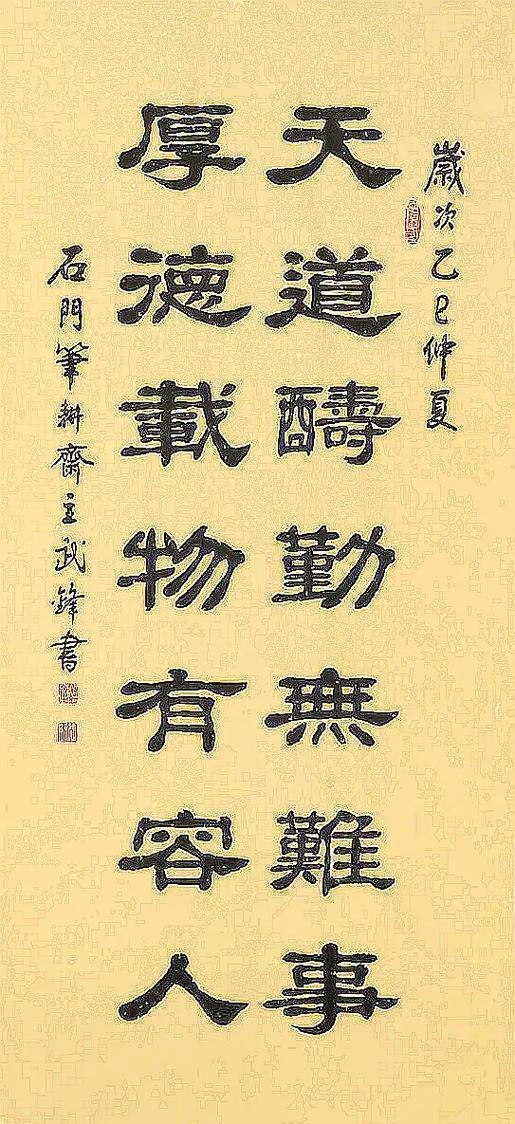 歲次乙巳仲夏
天道醻勤無難事
厚德載物有容人
石門筆耕齋主武鋒書